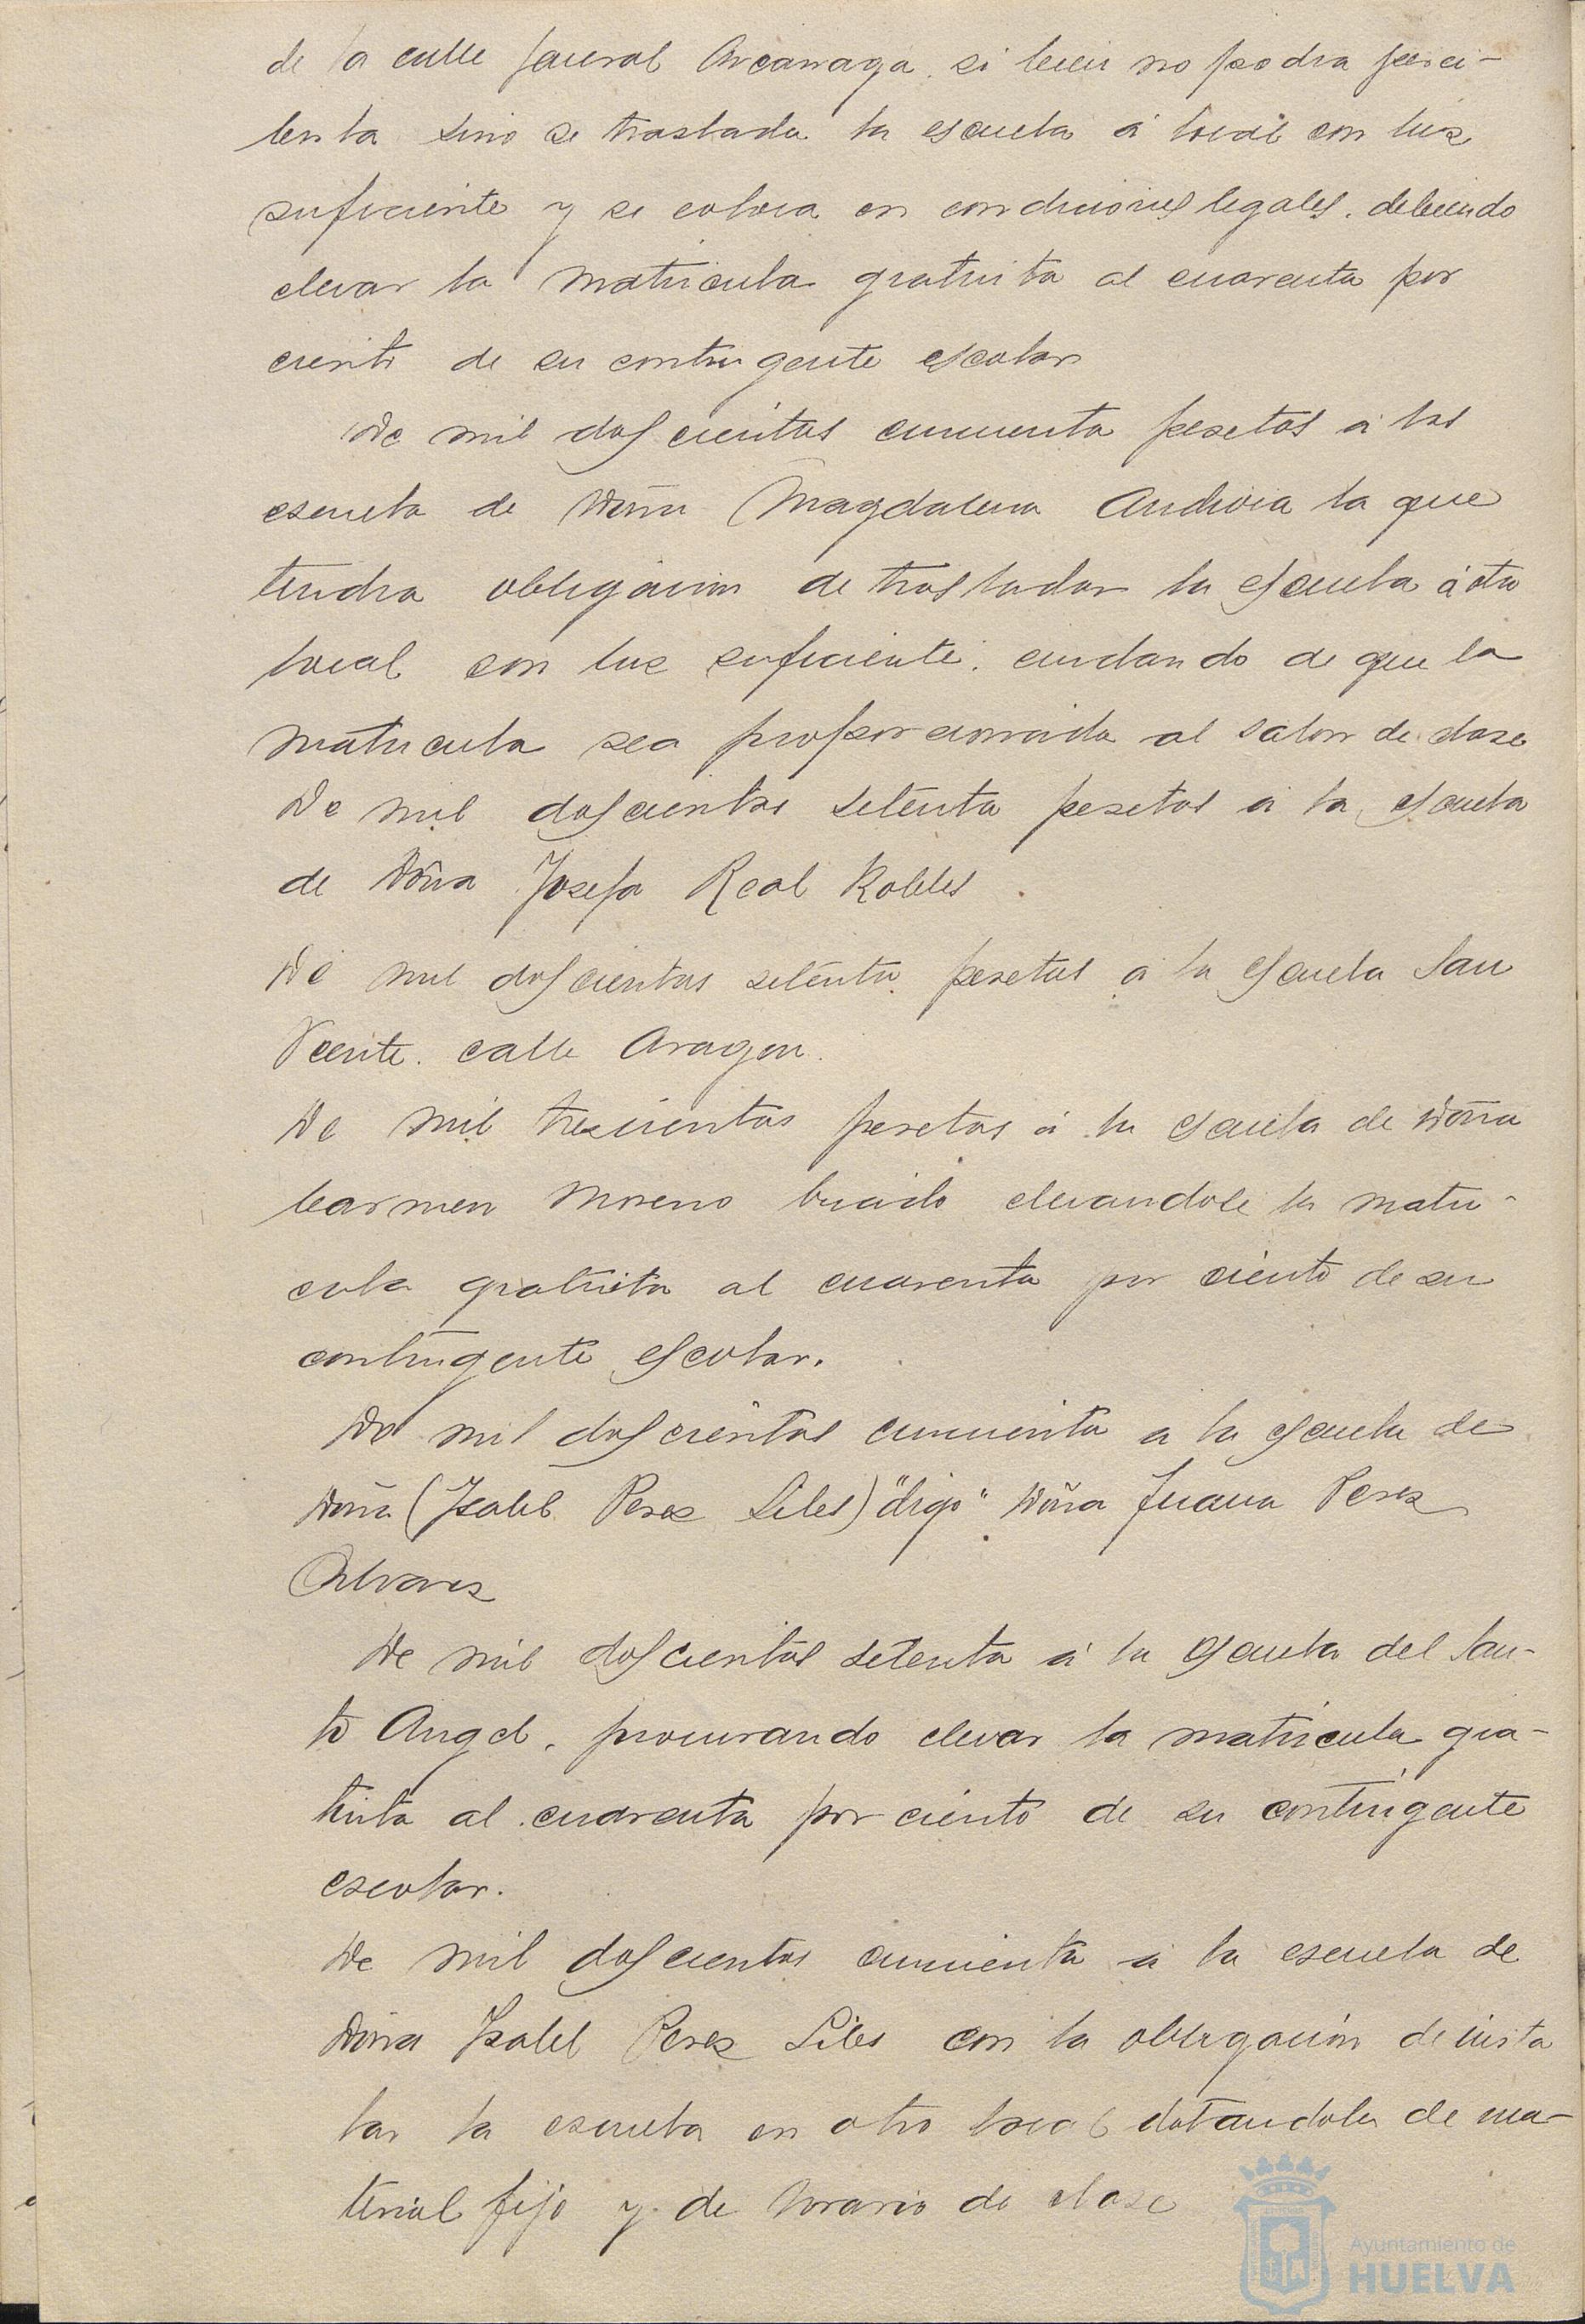 de la calle general Arcarraga. si bien no podra perci-
birla sino se traslada la escuela á local con luz
suficiente y se coloca en condiciones legales. debiendo
elevar la matricula gratuita al cuarenta por
ciento de su contingente escolar
De mil doscientas cincuenta pesetas á las
escuela de Doña Magdalena Andivia la que
tendra obligacion de trasladar la escuela á otro
local con luz suficiente. cuidando de que la
matricula sea proporcionada al salon de clase
De mil doscientas setenta pesetas á la escuela
de Doña Josefa Real Robles
De mil doscientas setenta pesetas á la escuela San
Vicente. calle Aragon.
De mil trescientas pesetas á la escuela de Doña
Carmen Moreno elevandole la matri-
cula gratuita al cuarenta por ciento de su
contingente escolar.
De mil doscientas cincuenta a la escuela de
Doña (Isabel Perez Siles) "digo" Doña Juana Perez
Alvarez
De mil doscientas setenta á la escuela del San-
to Angel. procurando elevar la matricula gra-
tuita al cuarenta por ciento de su contingente
escolar.
De mil doscientas cincuenta á la escuela de
Doña Isabel Perez Siles con la obligacion de insta
lar la escuela en otro local dotandola de ma-
terial fijo y de horario de clase
Ayuntamiento de
HUELVA